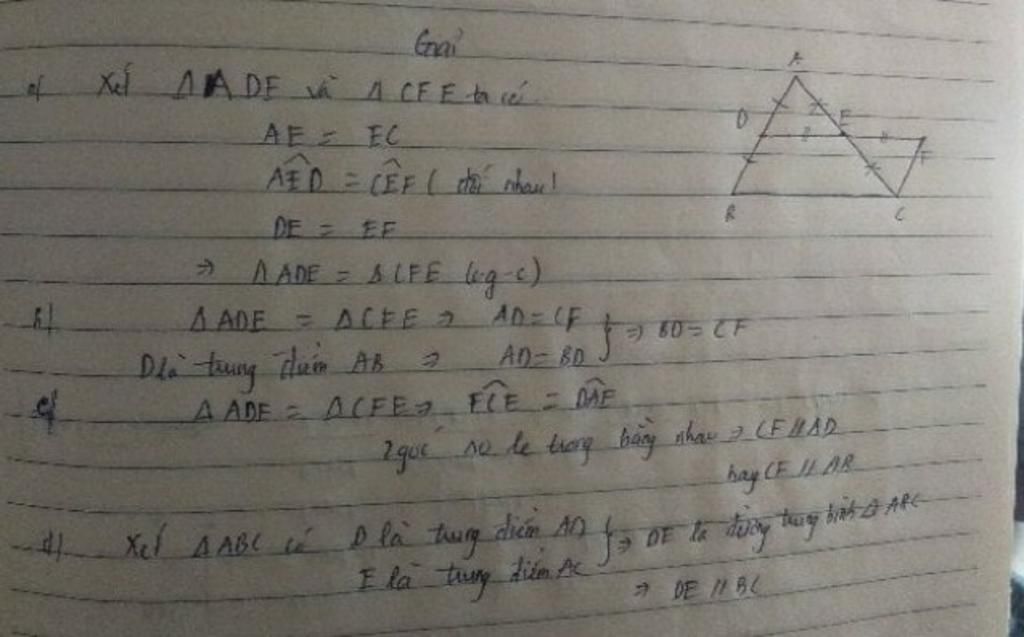 Giải
a/ Xét Δ ADE và Δ CFE ta có
AE = EC
AÊD = CÊF ( đối nhau)
DE = EF
⇒ Δ ADE = Δ CFE (c-g-c)
b/ Δ ADE = Δ CFE ⇒ AD = CF } ⇒ BD = CF
D là trung điểm AB ⇒ AD = BD
c/ Δ ADE = Δ CFE ⇒ FĈE = DÂE
2 góc so le trong bằng nhau ⇒ CF // AD
hay CF // AB
d/ Xét Δ ABC có D là trung điểm AD } ⇒ DE là đường trung bình Δ ABC
E là trung điểm AC
⇒ DE // BC
A
D
E
F
B
C